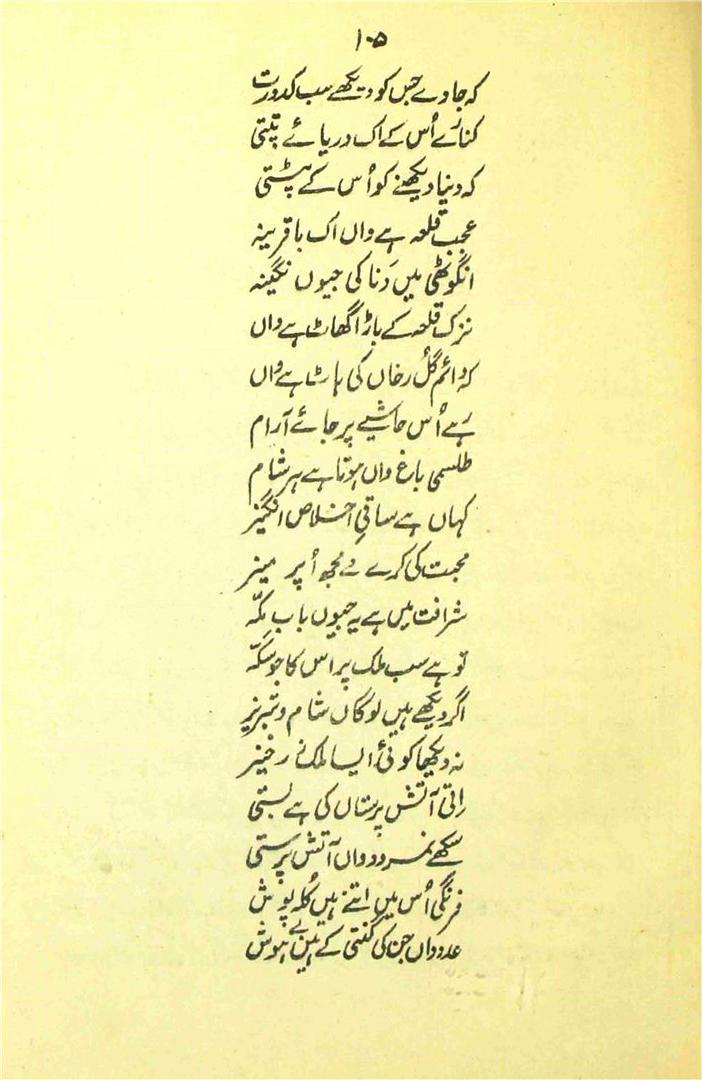 ۱۰۵
کہ جاوے جس کو دیکھے سب کدورت
کنارے اُس کے اک دریائے تپتی
کہ دنیا دیکھنے کو اُس کے ہٹتی
عجب قلعہ ہے واں اک باقرینہ
انگوٹھی میں دَنا کی جیوں نگینہ
نزک قلعہ کے باڑا گھاٹ ہے واں
کہ دائم گُل رخاں کی ہاٹ ہے واں
رہے اُس حاشیے پر جائے آرام
طلسمی باغ واں ہوتا ہے ہر شام
کہاں ہے ساقیِ اخلاص انگیز
محبت کی کرے مے مجھ اُپر مینر
شرافت میں ہے یہ جیوں باب مکّہ
تو ہے سب ملک پر اس کا جو سکّہ
اگر دیکھے ہیں لوگاں شام و تبریز
نہ دیکھا کوئی ایسا ملک زرخیز
اِتی آتش پرستاں کی ہے بستی
سکھے نمرود واں آتش پرستی
فرنگی اُس میں اتنے ہیں کُلہ پوش
عدد واں جن کی گنتی کے ہیں بے ہوش